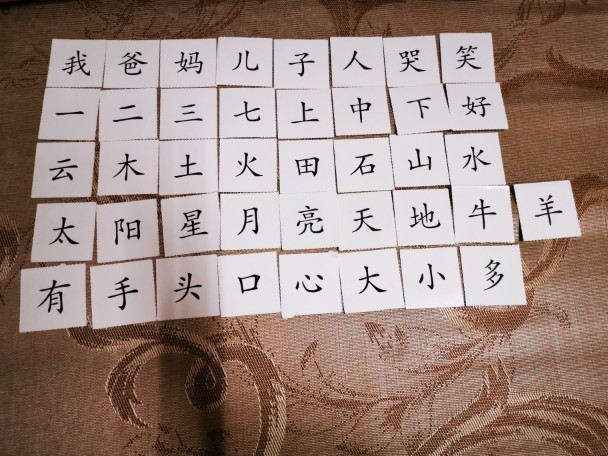 我爸妈儿子人哭笑
一二三七上中下好
云木土火田石山水
太阳星月亮天地牛羊
有手头口心大小多